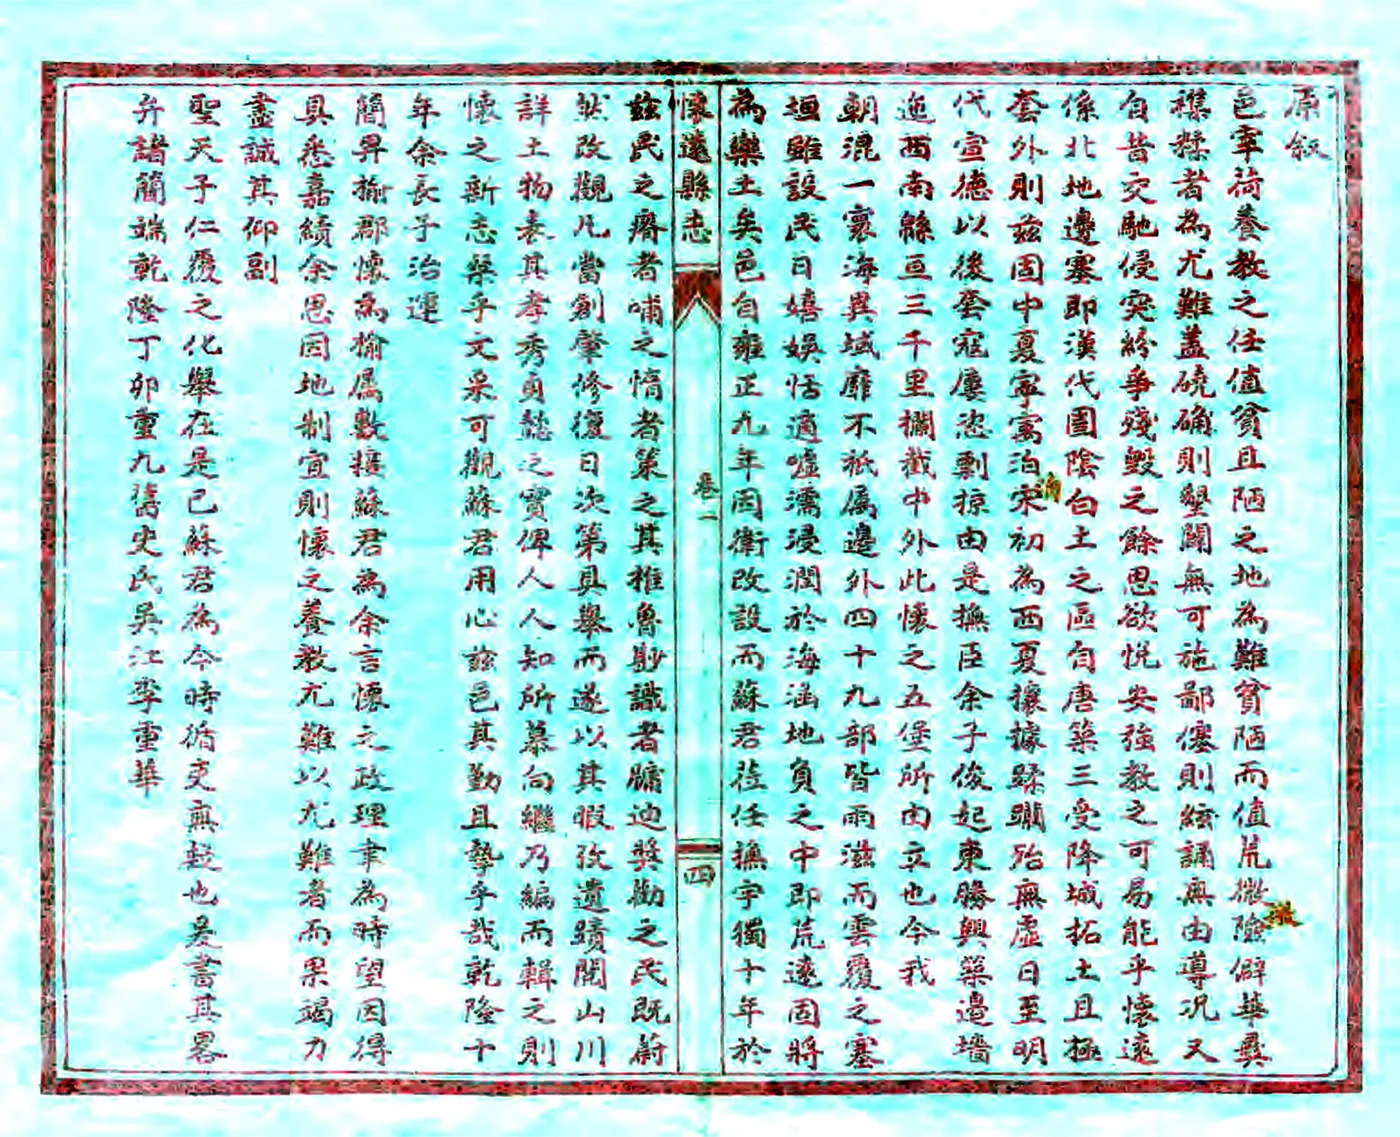 原叙
邑宰荷養教之任值貧且陋之地為難貧陋而值荒徼險僻華彝
襍糅者為尤難蓋磽确則墾闢無可施鄙僿則絃誦無由導況又
自昔交馳侵突紛爭殘毀之餘思欲悅安強教之可易能乎懷遠
係北地邊塞即漢代圁陰白土之區自唐築三受降城拓土且極
套外則茲固中夏寧寓洎宋初為西夏攘據蹂躪殆無虛日至明
代宣德以後套寇屢恣剽掠由是撫臣余子俊起東勝興築邊墻
迤西南緜亘三千里攔截中外此懷之五堡所由立也今我
朝混一寰海異域靡不祇属邊外四十九部皆雨滋而雲覆之塞
垣雖設民日嬉娛恬適噓濡浸潤於海涵地負之中即荒遠固將
為樂土矣邑自雍正九年因衛改設而蘇君莅任撫字獨十年於
懷遠縣志
卷一
四
茲民之瘠者哺之惰者策之其椎魯尠識者牖迪獎勸之民既蔚
然改觀凡當創肇修復日次第具舉而遂以其暇攷遺蹟閱山川
詳土物表其孝秀貞懿之實俾人人知所慕向繼乃編而輯之則
懷之新志粲乎文采可觀蘇君用心茲邑其勤且摯乎哉乾隆十
年余長子治運
簡畀榆郡懷為榆属數接蘇君為余言懷之政理聿為時望因得
具悉嘉績余思因地制宜則懷之養教尤難以尤難者而果竭力
盡誠其仰副
聖天子仁覆之化舉在是已蘇君為今時循吏無疑也爰書其畧
弁諸簡端乾隆丁卯重九舊史氏吳江李重華